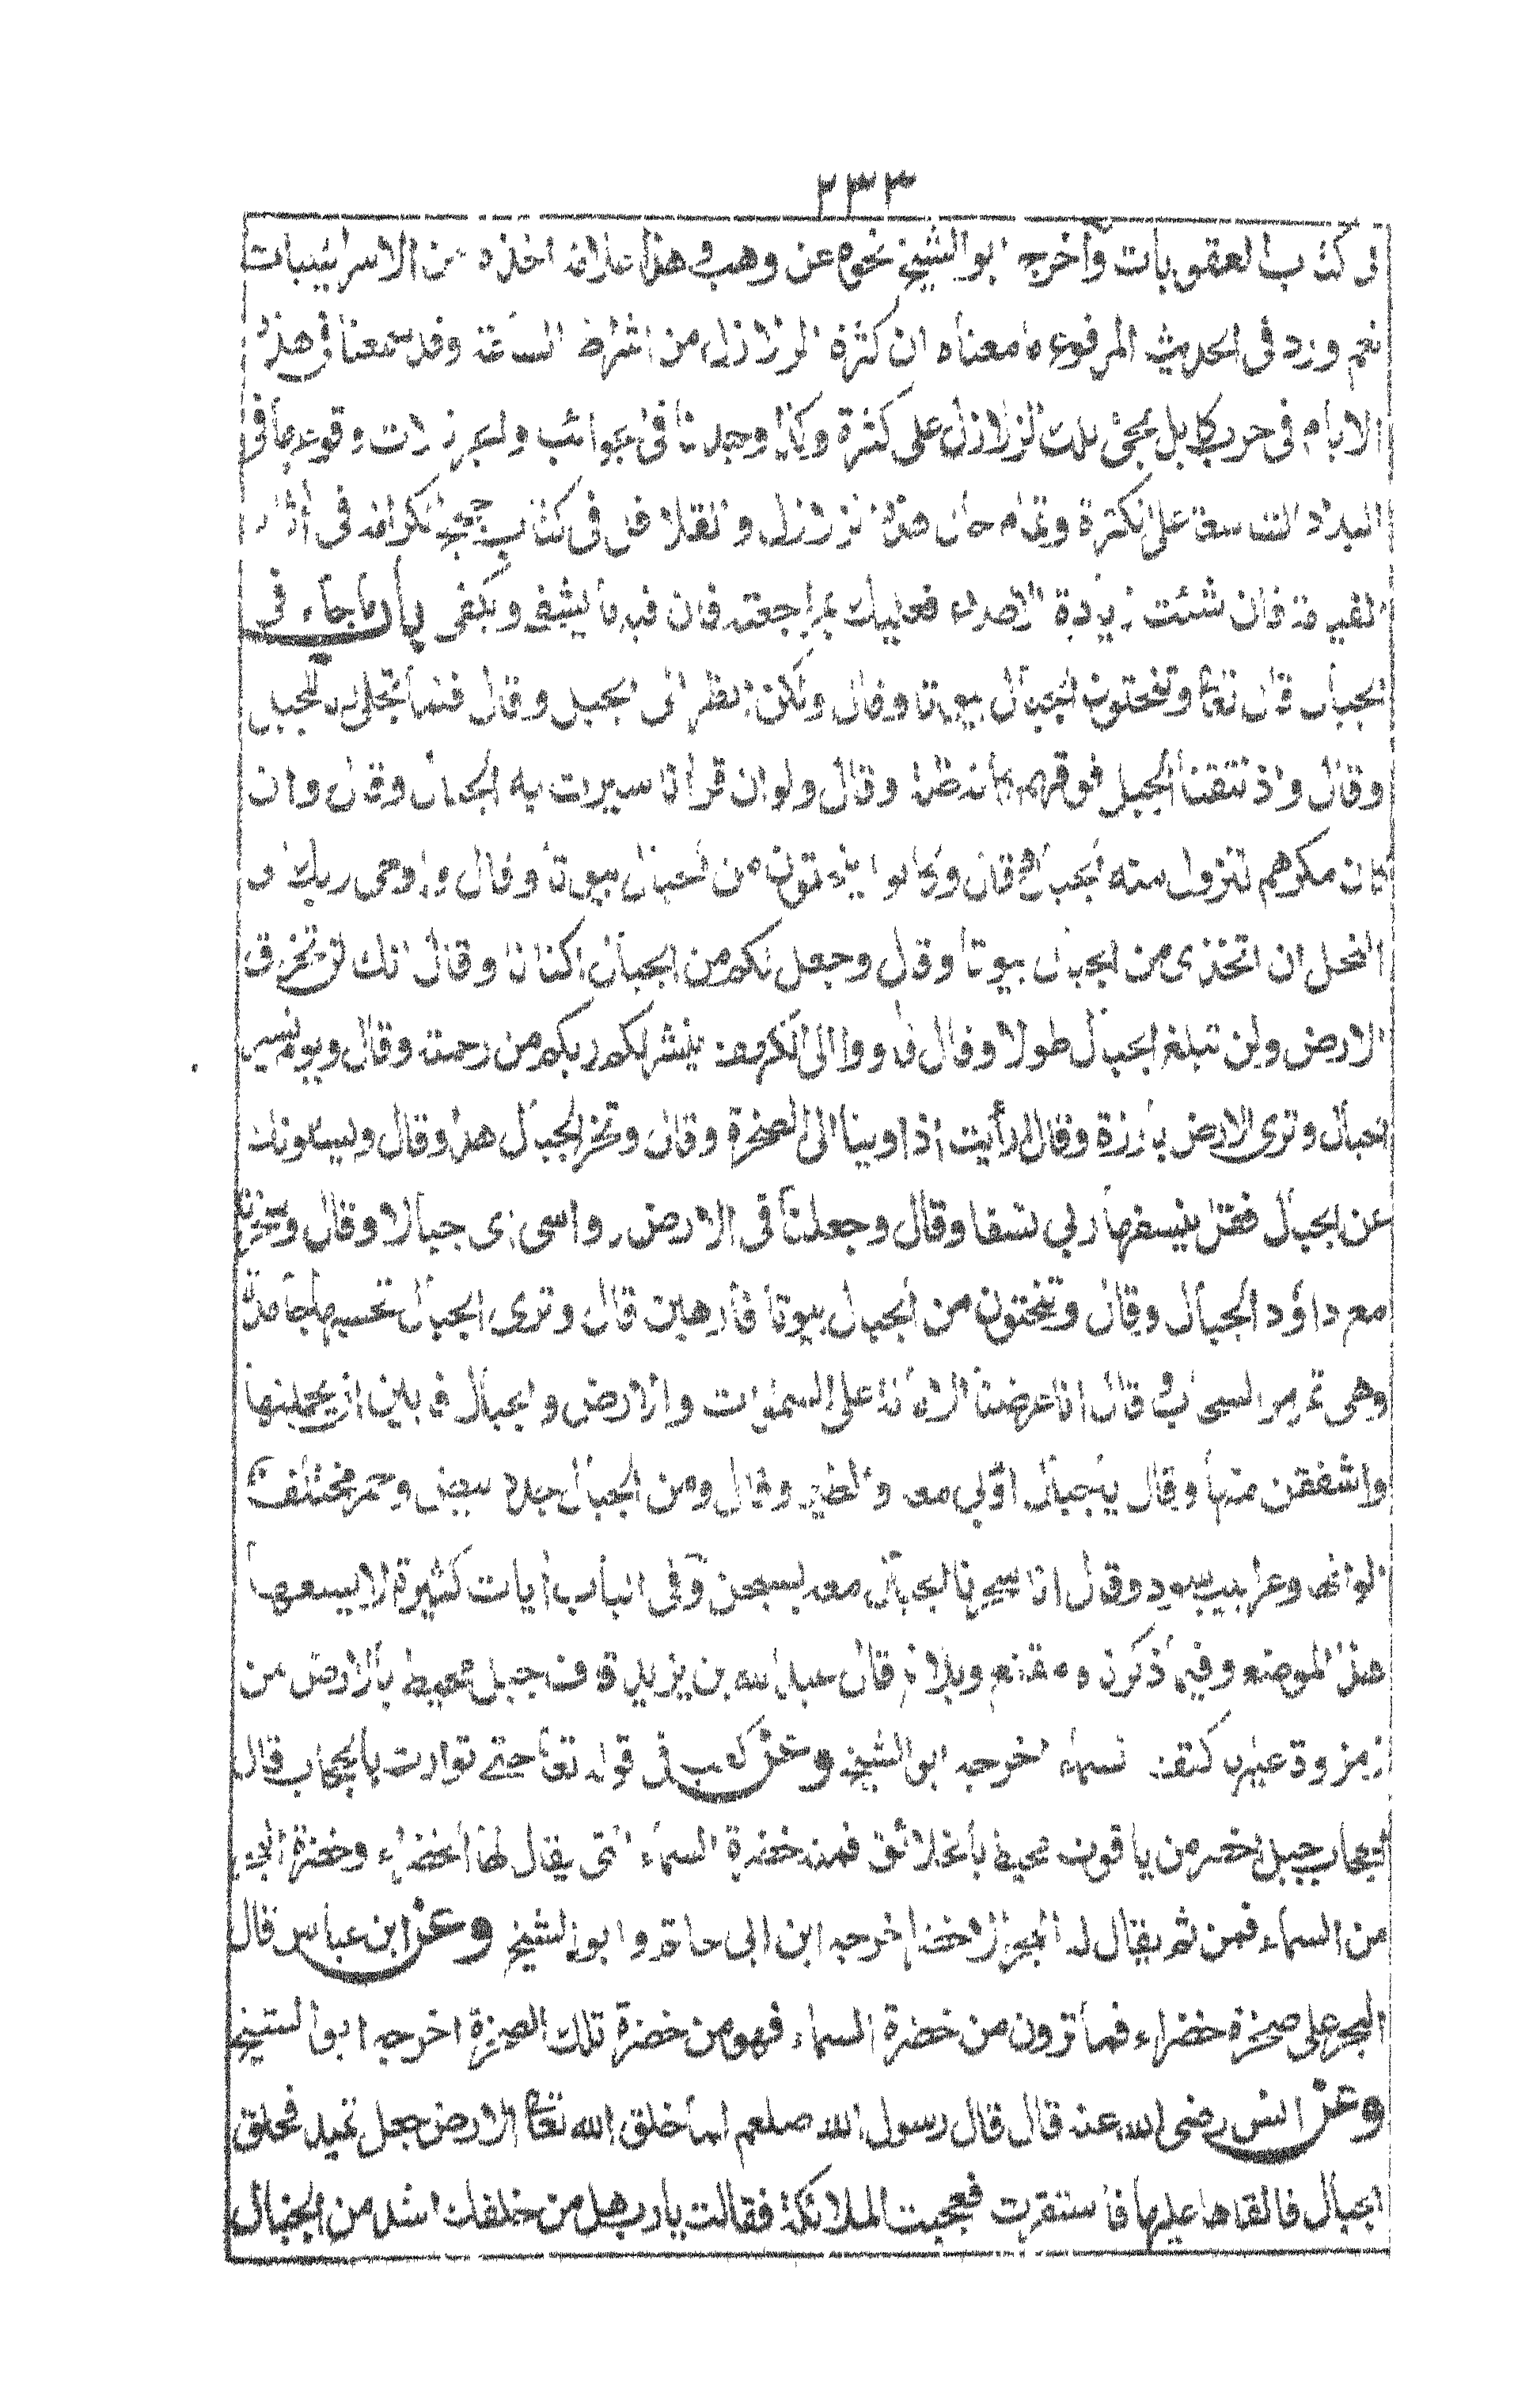 ٢٣٣
فى كتاب العقوبات وأخرج ابو الشيخ نحوه عن وهب وهذا مما اخذه من الاسرائيليات
نعم ورد فى الحديث المرفوع ما معناه ان كثرة الزلازل من اشراط الساعة وقد سمعنا فى هذه
الايام فى حرب كابل مجئ تلك الزلازل على كثرة وكذا وجدنا فى وقوعها فى
البلاد الشاسعة على الكثرة وتمام حال هذه الزلازل و نقلا فى كتاب حجج الكرامه فى أثار
القيمة فان شئت زيادة الاطلاع فعليك بمراجعته فان فيه ما يشفى ويكفى باب ما جاء فى
الجبال قال تعا وتنحتون الجبال بيوتا وقال ولكن انظر الى الجبل وقال فلما تجلى ربه للجبل
وقال واذ نتقنا الجبل فوقهم كانه ظلة وقال ولو ان قرأنا سيرت به الجبال وقال وان
كان مكرهم لتزول منه الجبال وقال وكانوا ينحتون من الجبال بيوتا وقال واوحى ربك الى
النحل ان اتخذى من الجبال بيوتا وقال وجعل لكم من الجبال اكنانا وقال انك لن تخرق
الارض ولن تبلغ الجبال طولا وقال فأووا الى الكهف ينشر لكم ربكم من رحمته وقال ويوم نسير
الجبال وترى الارض بارزة وقال ارأيت اذ اوينا الى الصخرة وقال وتخر الجبال هدا وقال ويسئلونك
عن الجبال فقل ينسفها ربي نسفا وقال وجعلنا فى الارض رواسى اى جبالا وقال وسخرنا
مع داؤد الجبال وقال وتنحتون من الجبال بيوتا فارهين قال وترى الجبال تحسبها جامدة
وهى تمر مر السحاب وقال انا عرضنا الامانة على السموات والارض والجبال فابين ان يحملنها
واشفقن منها وقال يٰجبال اوّبي معه والطير وقال ومن الجبال جدد بيض وحمر مختلف
الوانها وغرابيب سود وقال انا سخرنا الجبال معه يسبحن وفى الباب أيات كثيرة لا يسعها
هذا الموضع وفيما ذكرنا مقنع وبلاغ قال عبد الله بن يزيد قاف جبل محيط بالارض من
زمردة عليه كنفا السماء اخرجه ابو الشيخ وعن كعب فى قوله تعا حتى توارت بالحجاب قال
الحجاب جبل اخضر من ياقوت محيط بالخلائق فمنه خضرة السماء التى يقال لها الخضراء وخضرة البحر
من السماء فمن ثم يقال له البحر الاخضر اخرجه ابن ابى حاتم وابو الشيخ وعن ابن عباس قال
البحر على صخرة خضراء فما ترون من خضرة السماء فهو من خضرة تلك الصخرة اخرجه ابو الشيخ
وعن انس رضى الله عنه قال قال رسول الله صلعم لما خلق الله تعا الارض جعل تميد فخلق
الجبال فالقاها عليها فاستقرت فعجبت الملائكة فقالت يا رب هل من خلقك اشد من الجبال